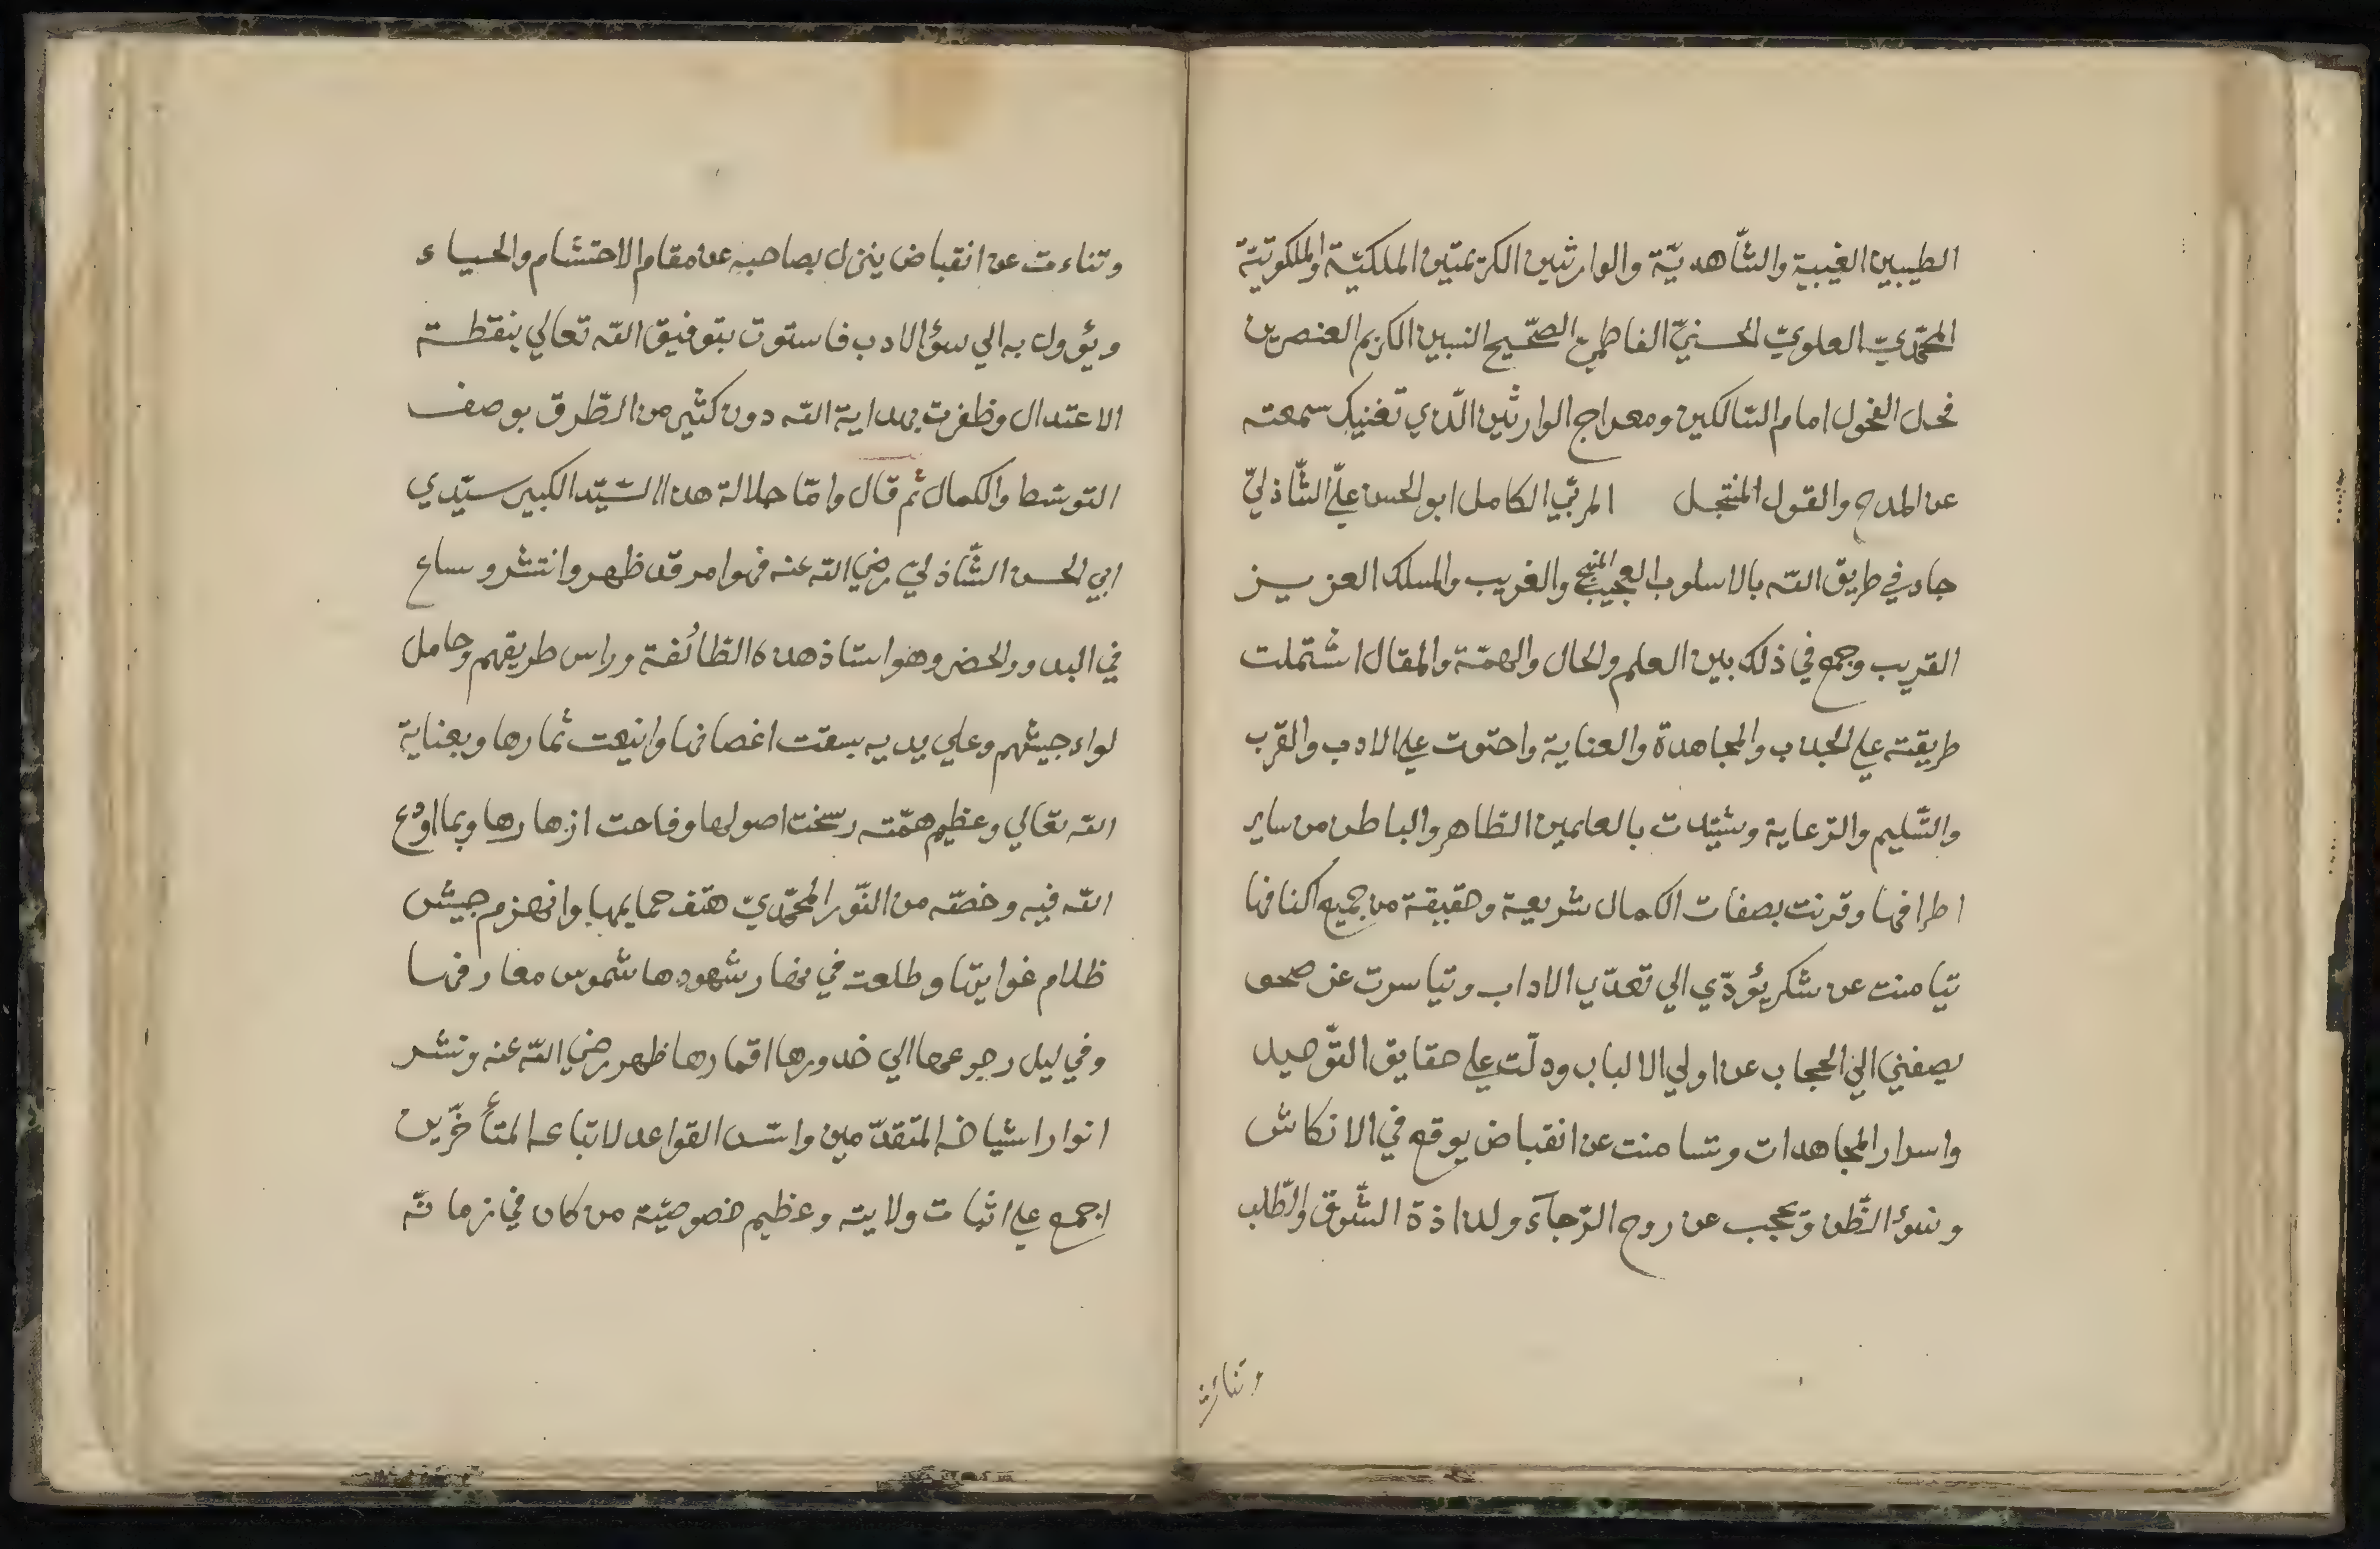 الطيبين الغيبية والشّاهديّة والوارثين الكريمتين الملكيّة والملكوتيّة
المحمّديّ العلويّ الحسنيّ الفاطميّ الصّحيح النسبين الكريم العنصرين
فحل الفحول امام السّالكين ومعراج الوارثين الّذي تغنيك سمعته
عن المدح والقول المنتحل المربّي الكامل ابو الحسن عليّ الشّاذليّ
جاد في طريق الله بالاسلوب العجيب المنهج والغريب والمسلك العزيز
القريب وجمع في ذلك بين العلم والحال والهمّة والمقال اشتملت
طريقته علي الجذب والمجاهدة والعناية واحتوت علي الادب والقرب
والتّسليم والرّعاية وشيّدت بالعلمين الظاهر والباطن من ساير
اطرافها وقرنت بصفات الكمال شريعة وحقيقة من جميع اكنافها
تيامنت عن سكر يؤدّي الي تعدّي الاداب وتياسرت عن صحو
يصفني الي الحجاب عن اولي الالباب ودلّت علي حقايق التّوحيد
واسرار المجاهدات وتسامنت عن انقباض يوقع في الانكاش
وسؤ الظّن وتحجب عن روح الرّجآء ولذاذة الشّوق والطّلب
وتناءت
وتناءت عن انقباض ينزل بصاحبه عن مقام الاحتشام والحياء
ويؤول به الي سؤ الادب فاستوت بتوفيق الله تعالي بنقطة
الاعتدال وظفرت بهداية الله دون كثير من الطّرق بوصف
التوسّط والكمال ثم قال وامّا جلالة هذا السّيّد الكبير سيّدي
ابي الحسن الشّاذليّ رضي الله عنه فهو امر قد ظهر وانتشر وساع
في البدو والحضر وهو استاذ هذه الطائفة وراس طريقهم وحامل
لواء جيشهم وعلي يديه بسقت اغصانها واينعت ثمارها وبعناية
الله تعالي وعظيم همّته رسخت اصولها وفاحت ازهارها وبما اودع
الله فيه وخصّه من النّور المحمّديّ هتف حمايمها وانهزم جيش
ظلام غوايتها وطلعت في نهار شهودها شموس معارفها
وفي ليل رجوعها الي خدورها اقمارها ظهر رضي الله عنه ونشر
انوار اشياخه المتقدّمين واسّس القواعد لاتباعه المتأخّرين
اجمع علي اثبات ولايته وعظيم خصوصيّته من كان في زمانه